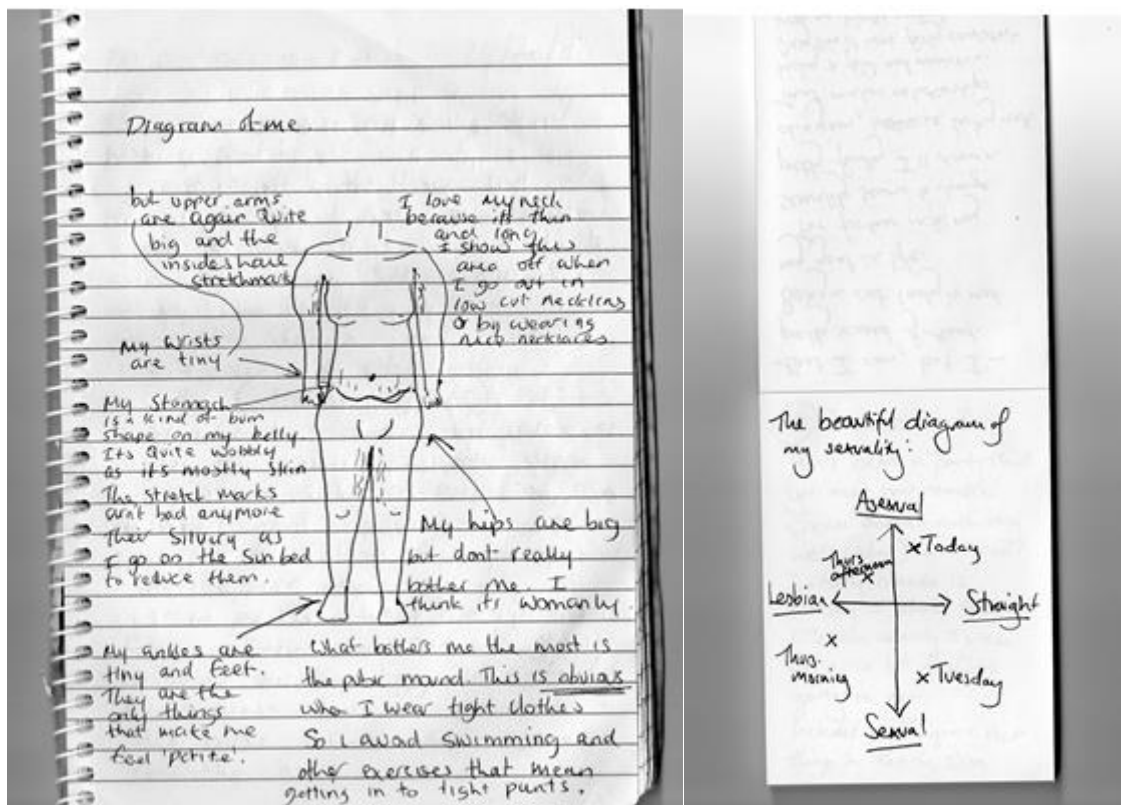 Diagram of me
but upper arms
are again Quite
big and the
insides have
stretchmark
I love My neck
because its thin
and long
I show this
area off when
I go out in
low cut necklins
or by wearing
nice necklaces
My Wrists
are tiny
My Stomach
is a kind of bum
shape on my belly
Its Quite wobbly
as it's mostly skin
The stretch marks
arn't bad anymore
Their Silvery as
I go on the Sun bed
to reduce them.
My hips are big
but dont really
bother me I
think its womanly.
My ankles are
tiny and feet.
They are the
only things
that make me
feel 'petite'.
What bothers me the most is
the pubic mound. This is obvious
when I wear tight clothes
So I avoid swimming and
other exercises that mean
getting in to tight pants.
The beautiful diagram of
my sexuality:
Asexual
x Today
Thurs
afternoon
x
Lesbian
Straight
x
Thurs.
morning
x Tuesday
Sexual